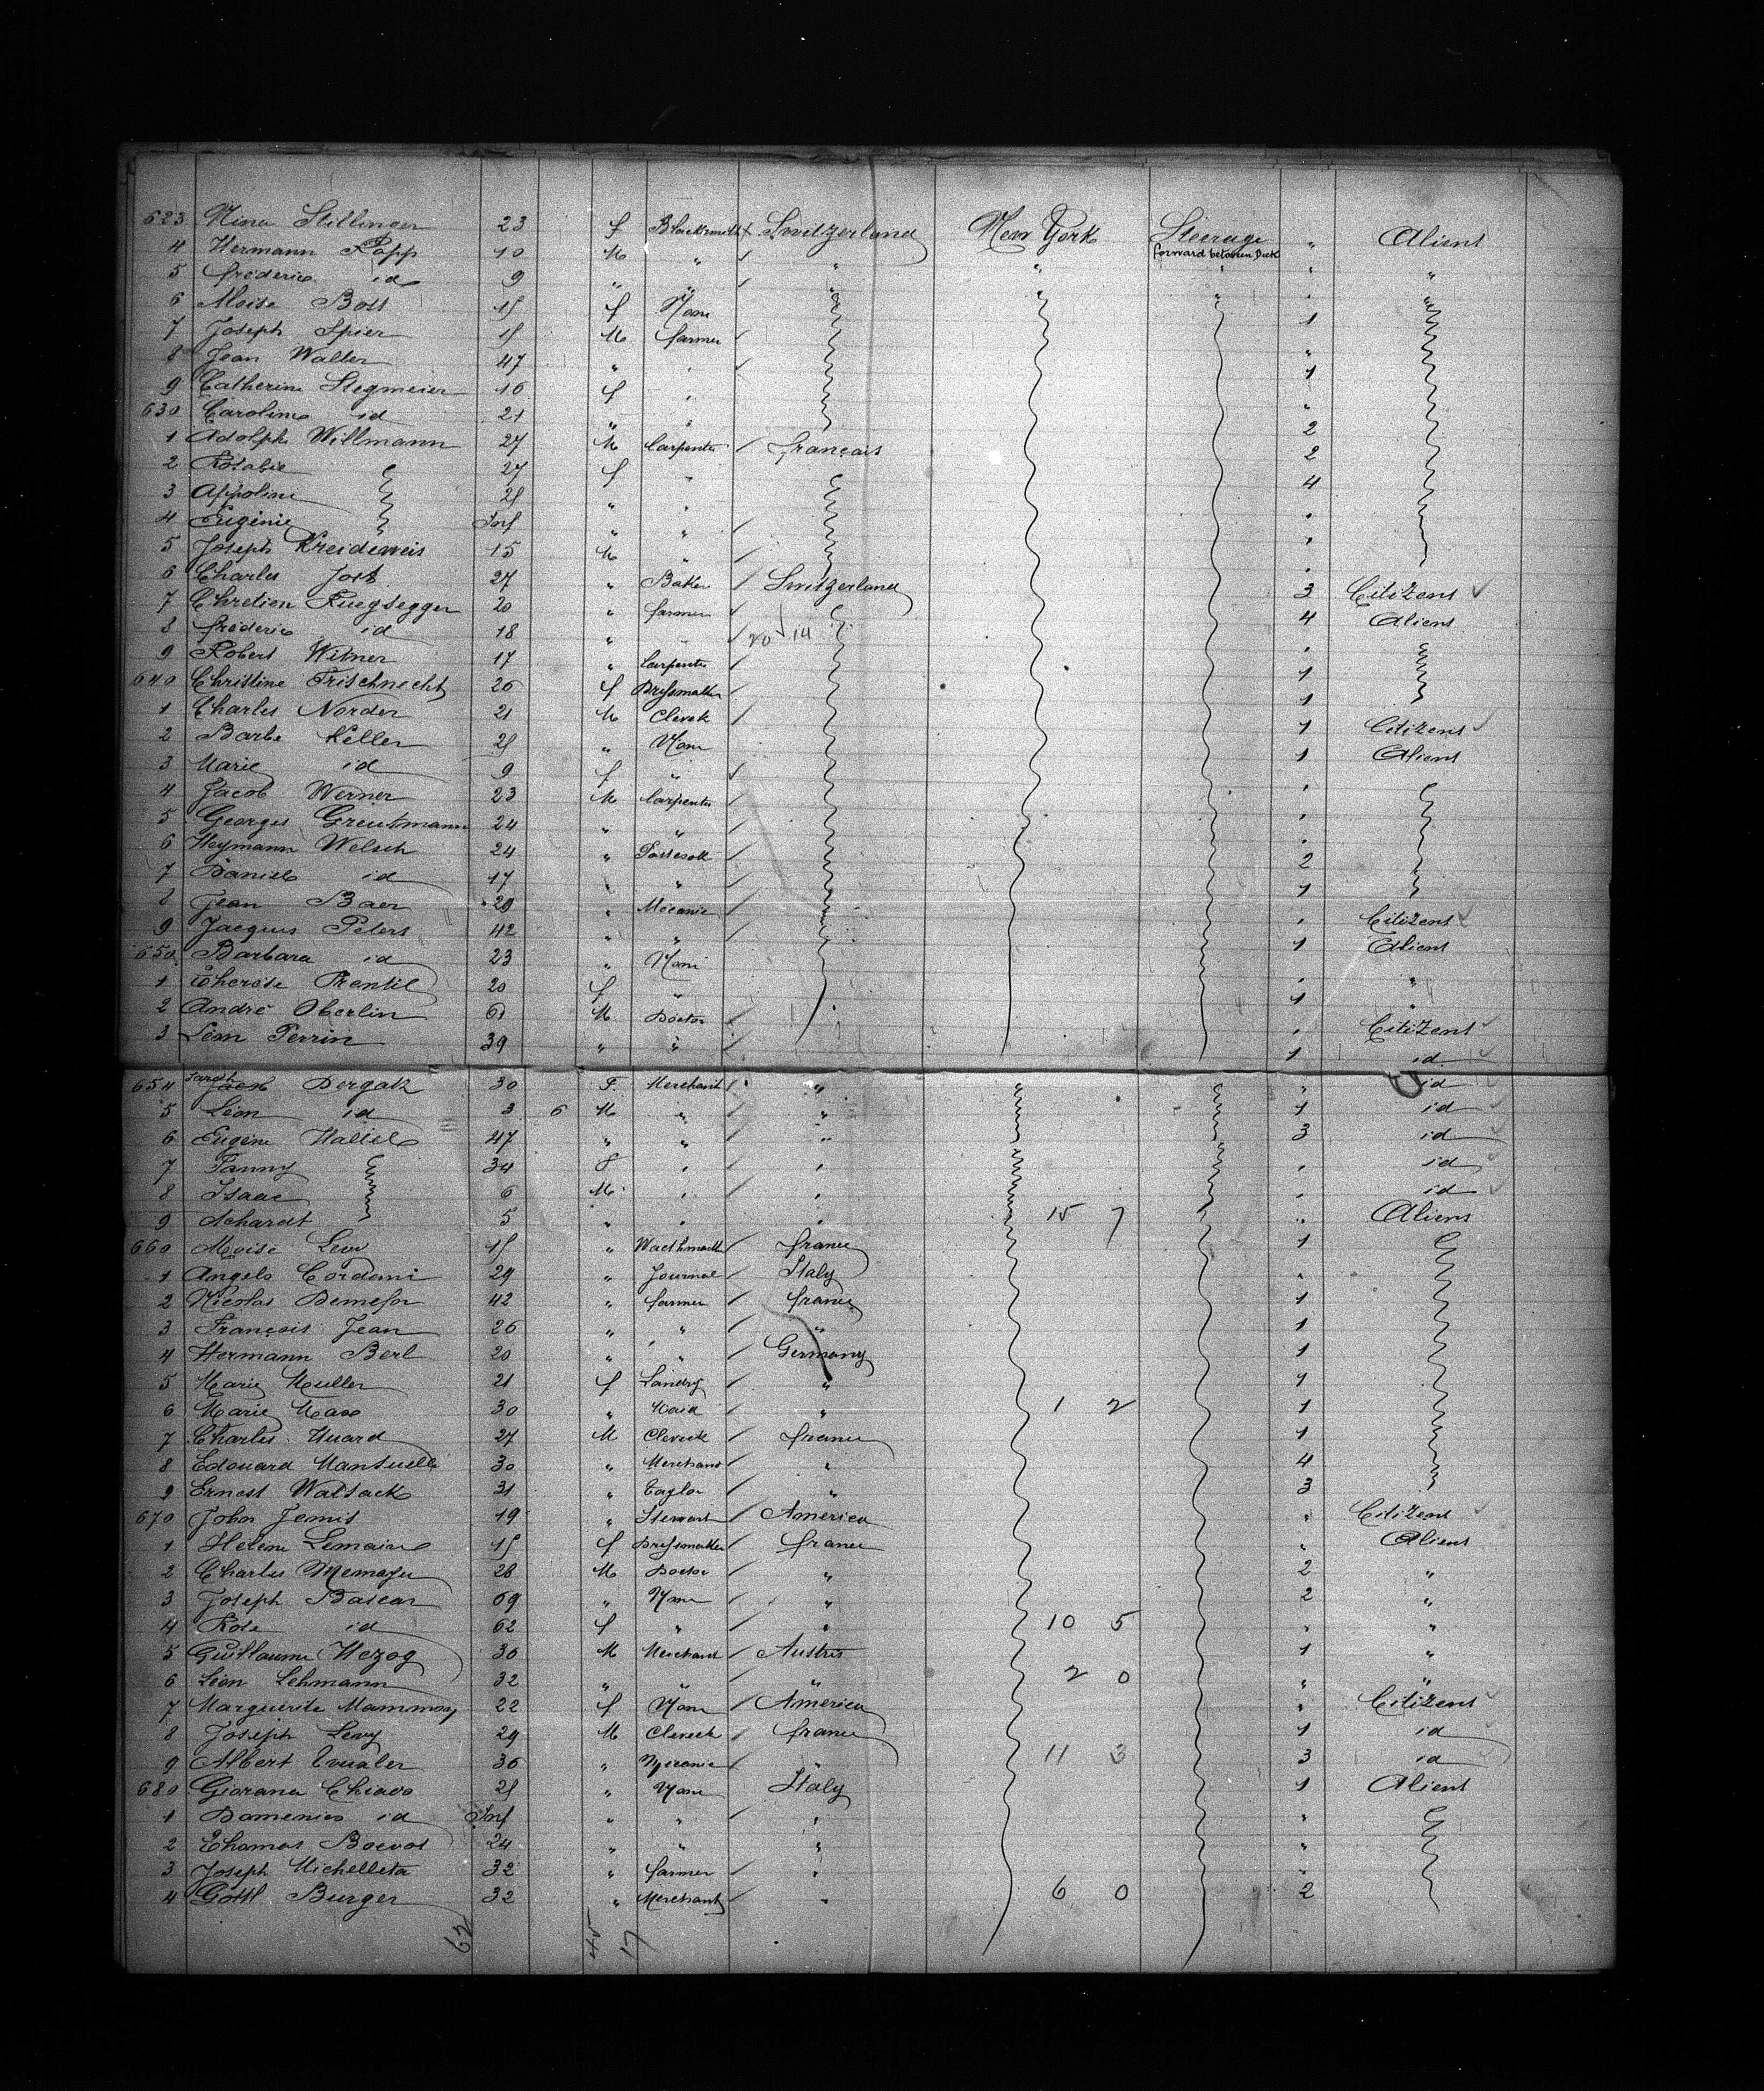 623 Nina Stillinger 23 f Blacksmith Switzerland New York Steerage " Alient
forward between Deck
4 Hermann Rapp 10 M " " " " " "
5 frederic id 9 " " " " " " "
6 Moise Boss f None 1
7 Joseph Spier M farmer "
8 Jean Walter 47 " " 1
9 Catherine Stegmeier 16 f " "
630 Caroline id 21 " " 2
1 Adolphe Willmann 27 M Carpenter français 2
2 Rosalie 27 f " 4
3 Appoline " " "
4 Eugénie Inf " " "
5 Joseph Kreideweis 15 M " "
6 Charles Jost 27 " Baker Switzerland 3 Citizens
7 Chretien Ruegsegger 20 " farmer 4 Aliens
8 frederic id 18 " " 20 14 "
9 Robert Witner 17 " Carpenter 1
640 Christine Frischnecht 26 f Dressmaker 1
1 Charles Norder 21 M Clerck 1 Citizens
2 Barbe Keller " None 1 Aliens
3 Marie id 9 f " "
4 Jacob Werner 23 M Carpenter "
5 Georges Greutmann 24 " " "
6 Heymann Welsch 24 " 2
7 Daniel id 17 " " 1
8 Jean Baer 29 " Mecanic " Citizens
9 Jacques Peters 42 " " 1 Alient
650 Barbara id 23 " None " "
1 Therese Prentil 20 f " 1 "
2 André Oberlin M Doctor " Citizens
3 Léon Perrin 39 " " 1 id
654 Sarah Dergatz 30 F. Merchant " " id
5 Léon id 3 6 M " " 1 id
6 Eugène 47 " " " 3 id
7 Fanny 34 f " " " id
8 Isaac 6 M " " " id
9 5 " " " 15 7 " Aliens
660 Moise Levy " france 1
1 Angelo Cordani 29 " Journal Italy "
2 Nicolas 42 " farmer france 1
3 François Jean 26 " " " 1
4 Hermann Berl 20 " " Germany 1
5 Marie Muller 21 f Landry " 1
6 Marie Max 30 " Maid " 1 2 1
7 Charles Huard 27 M Clerck france 1
8 Edouard Mansuelli 30 " Merchant " 4
9 Ernest Watsack 31 " Taylor " 3
670 John Jemis 19 " Stewart America " Citizens
1 Helene Lemaire f Dressmaker france " Alient
2 Charles 28 M Doctor " 2 "
3 Joseph 69 " None " 2 "
4 Rose id 62 f " " 10 5 " "
5 Guillaume Hezog 30 M Merchand Austris 1 "
6 Léon Lehmann 32 " " " 2 0 " "
7 Marguerite Mammoy 22 f None America " Citizens
8 Joseph Levy 29 M Clerck france 1 id
9 Albert 36 " Mecanic " 11 3 3 id
680 Giovana Chiavo " None Italy 1 Alient
1 Domenico id Inf " " " "
2 Thomas 24 " " " "
3 Joseph Michelleta 32 " farmer " "
4 Gottl Burger 32 " Merchant " 6 0 2
62 17